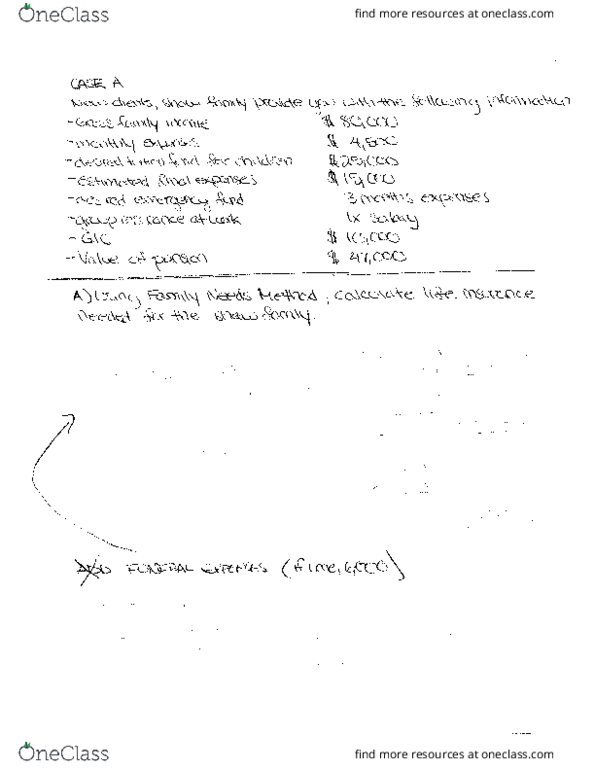 OneClass
find more resources at oneclass.com
CASE A
New clients, show family provide you with the following information
- Gross family income $ 80,000
- monthly expenses $ 4,500
- desired fund for children $25,000
- estimated final expenses $ 15,000
- desired emergency fund 3 months expenses
- group insurance at work 1x salary
- GIC
- Value of pension
A) Using Family Needs Method, calculate life insurance
needed for the show family.
FUNERAL EXPENSES
OneClass
find more resources at oneclass.com